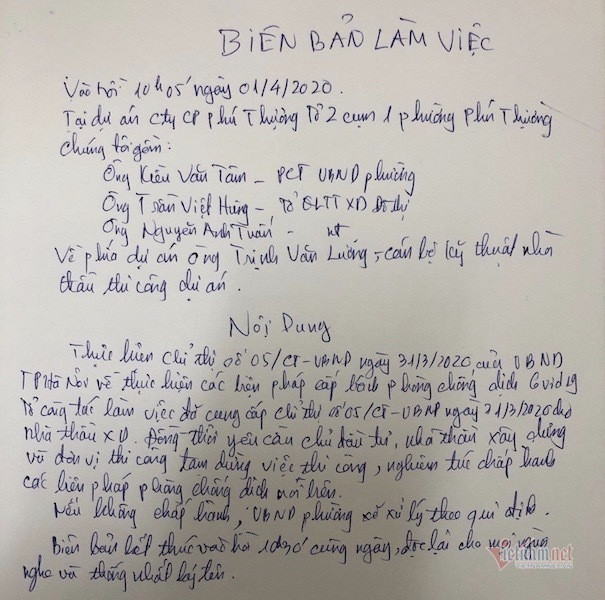 BIÊN BẢN LÀM VIỆC
Vào hồi 10h05' ngày 01/4/2020.
Tại dự án cty CP Phú Thượng Tổ 2 cụm 1 phường Phú Thượng
chúng tôi gồm:
Ông Kiều Văn Tâm - PCT UBND phường
Ông Trần Việt Hưng - Tổ QLTTXD đô thị
Ông Nguyễn Anh Tuấn - nt
Về phía dự án ông Trịnh Văn Lường, cán bộ kỹ thuật nhà
thầu thi công dự án.
Nội Dung
Thực hiện chỉ thị số 05/CT-UBND ngày 31/3/2020 của UBND
TP Hà Nội về thực hiện các biện pháp cấp bách phòng chống dịch Covid 19
Tổ công tác làm việc đã cung cấp chỉ thị số 05/CT-UBND ngày 31/3/2020 cho
nhà thầu XD. Đồng thời yêu cầu chủ đầu tư, nhà thầu xây dựng
và đơn vị thi công tạm dừng việc thi công, nghiêm túc chấp hành
các biện pháp phòng chống dịch nói trên.
Nếu không chấp hành, UBND phường sẽ xử lý theo qui định.
Biên bản kết thúc vào hồi 10h30' cùng ngày, đọc lại cho mọi người
nghe và thống nhất ký tên.
Vietnamnet